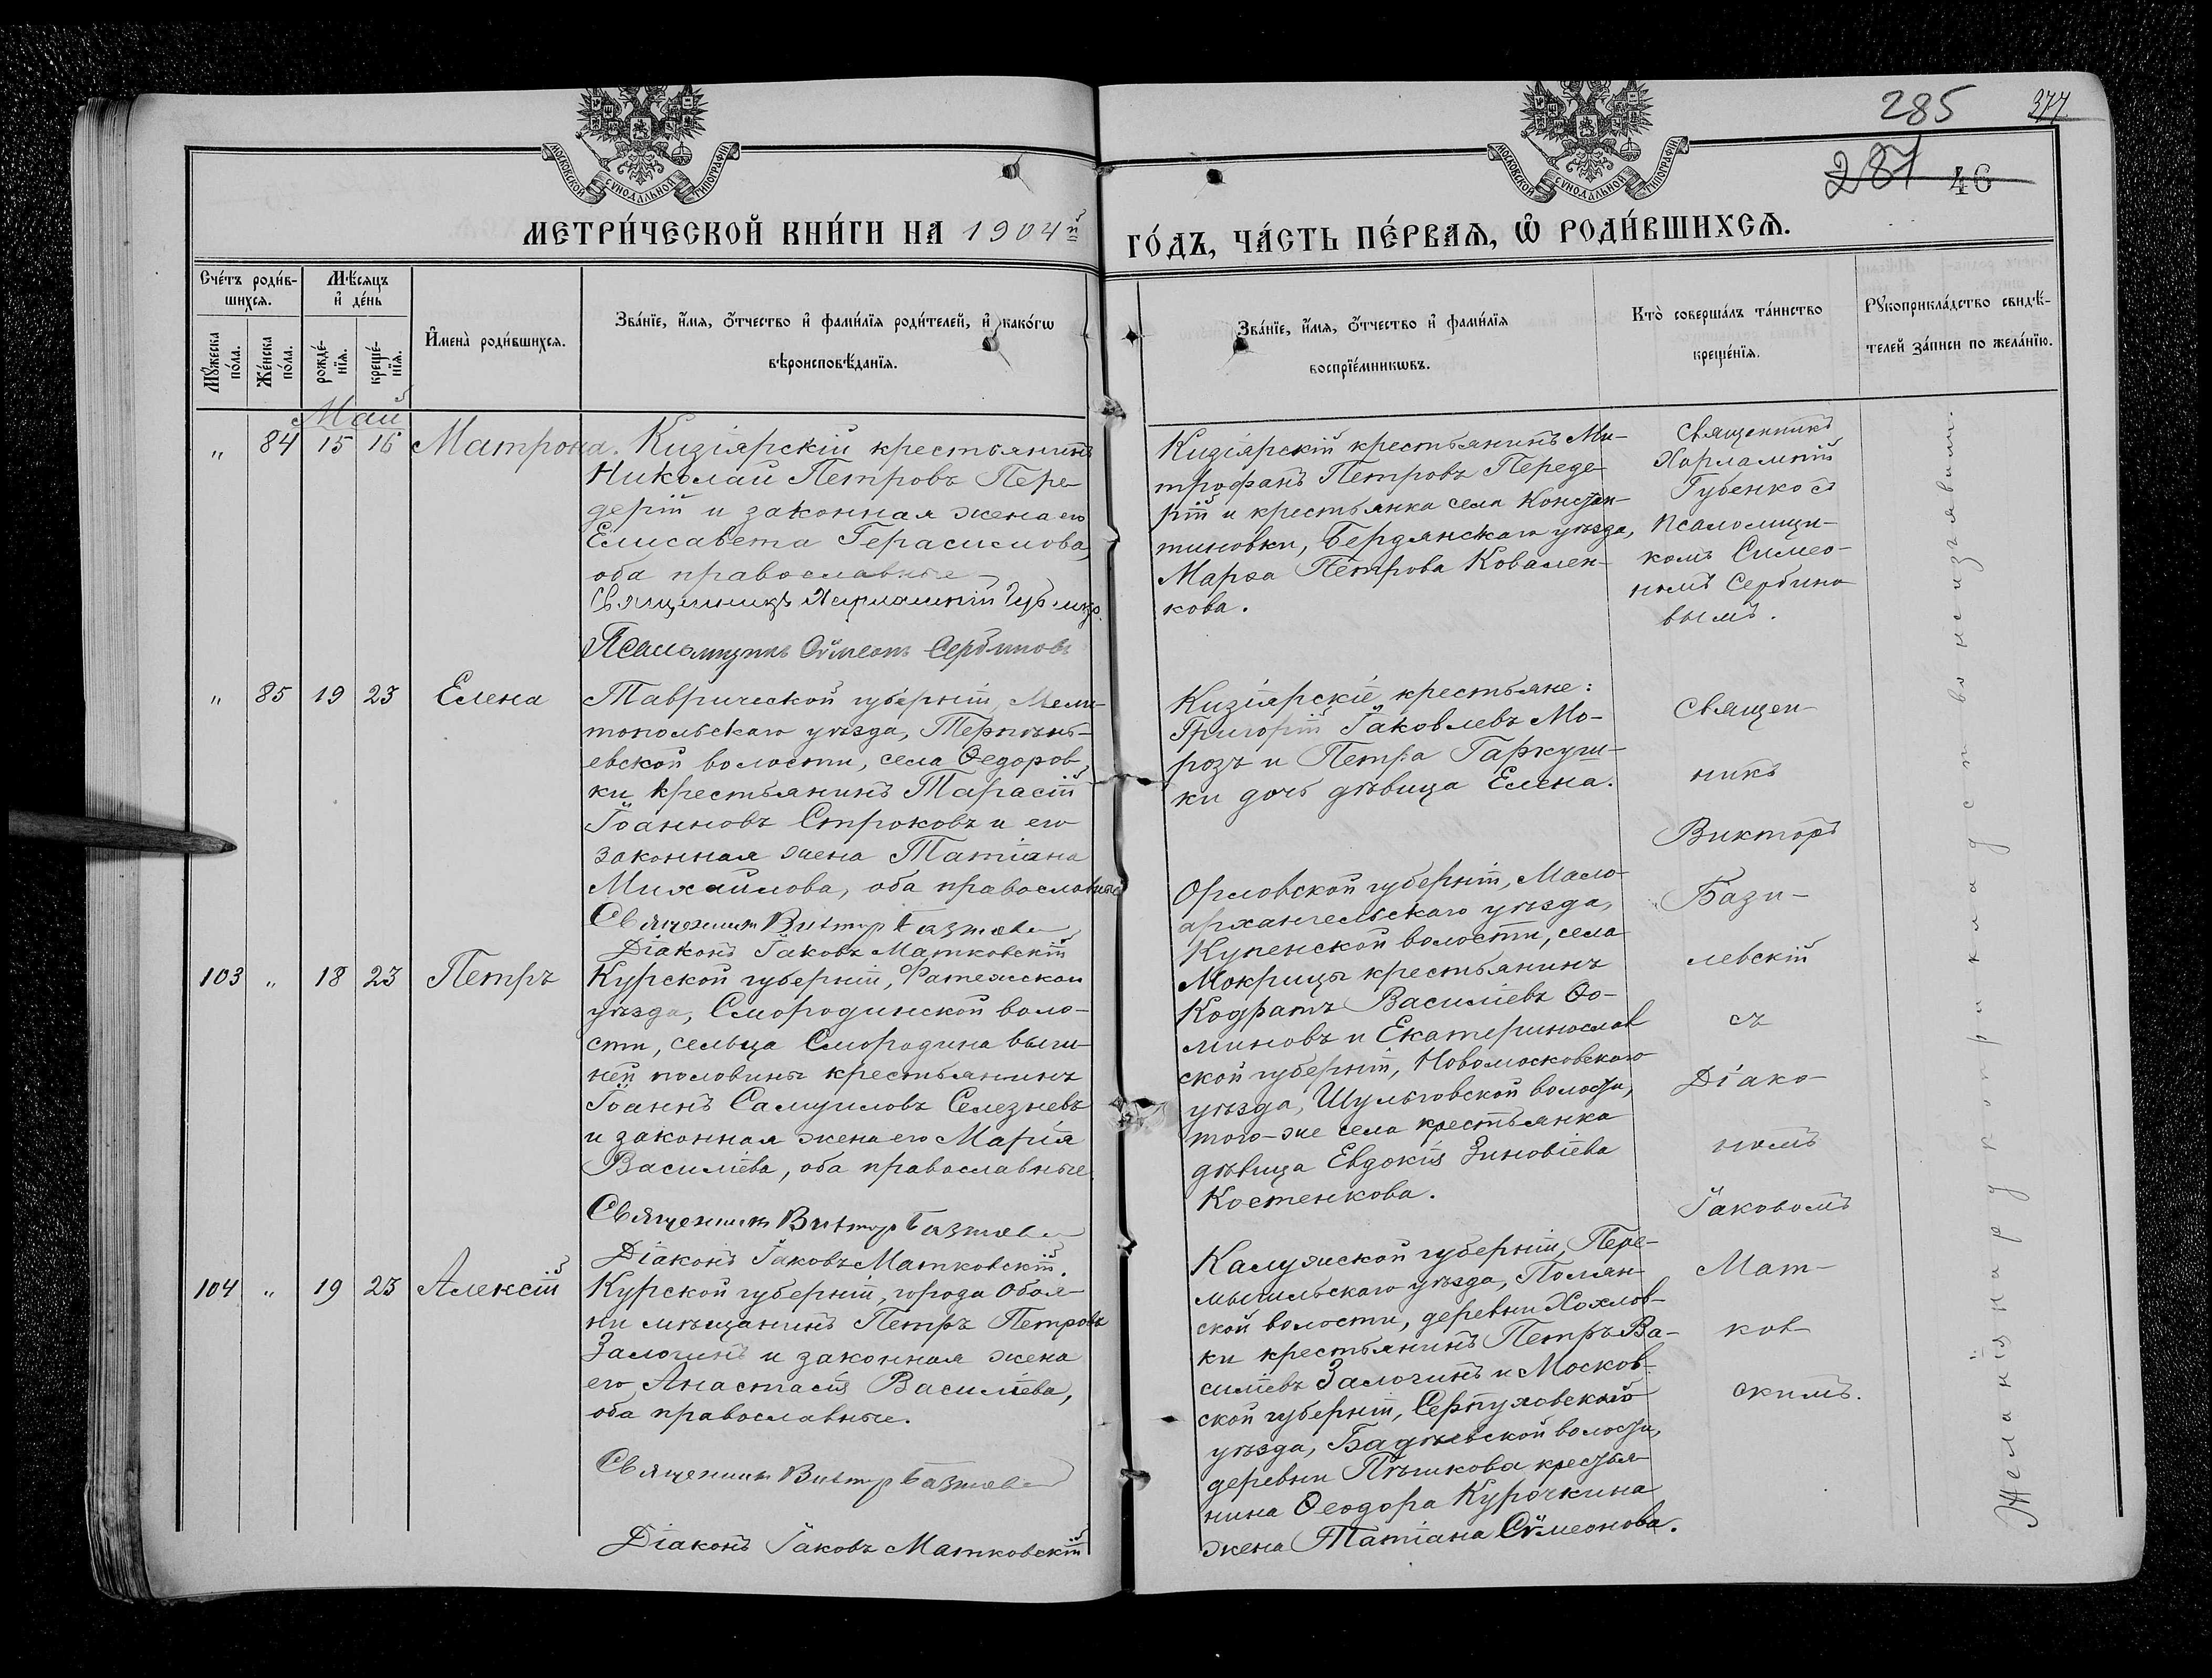 285
377
287 46
МОСКОВСКОЙ СѴНОДАЛЬНОЙ ТИПОГРАФІИ
МОСКОВСКОЙ СѴНОДАЛЬНОЙ ТИПОГРАФІИ
МЕТРИ́ЧЕСКОЙ КНИ́ГИ НА 1904й
ГО́ДЪ, ЧА́СТЬ ПЕ́РВАѦ, Ѽ РОДИ́ВШИХСѦ.
Сче́тъ роди́в-
шихсѧ.
Мѣ́сѧцъ
и҆ де́нь
Мꙋ́жеска
по́ла.
Же́нска
по́ла.
рожде́-
нїѧ.
креще́-
нїѧ.
И҆мена̀ роди́вшихсѧ.
Зва́нїе, и҆́мѧ, ѻ҆́тчество и҆ фамѝлїѧ роди́телей, и҆ како́гѡ
вѣроисповѣ́данїѧ.
Зва́нїе, и҆́мѧ, ѻ҆́тчество и҆ фами́лїѧ
воспрїе́мникѡвъ.
Кто̀ соверша́лъ та́инство
креще́нїѧ.
Рꙋкоприкла́дство свидѣ́-
телей за́писи по жела́нїю.
Май
„ 84 15 16 Матрона.
Кизіярскій крестьянинъ
Николай Петровъ Пере-
дерій и законная жена его
Елисавета Герасимова,
оба православные
Священникъ Харлампій Губенко.
Псаломщикъ Сѵмеонъ Сербиновъ
Кизіярскій крестьянинъ Ми-
трофанъ Петровъ Переде-
рій и крестьянка села Констан-
тиновки, Бердянскаго уѣзда,
Марѳа Петрова Ковален-
кова.
Священникъ
Харлампій
Губенко съ
псаломщи-
комъ Симео-
номъ Сербино-
вымъ.
„ 85 19 23 Елена
Таврической губерніи, Мели-
топольскаго уѣзда, Терпѣнь-
евской волости, села Ѳедоров-
ки крестьянинъ Тарасій
Іоанновъ Строковъ и его
законная жена Татіана
Михайлова, оба православные
Священникъ Викторъ Базилев
Діаконъ Іаковъ Матковскій
Кизіярскіе крестьяне:
Григорій Іаковлевъ Мо-
розъ и Петра Гаркуш-
ки дочь дѣвица Елена.
Священ-
никъ
Викторъ
Бази-
левскій
съ
Діако-
номъ
Іаковомъ
Мат-
ков-
скимъ.
103 „ 18 23 Петръ
Курской губерніи, Фатежскаго
уѣзда, Смородинской воло-
сти, сельца Смородина выш-
ней половины крестьянинъ
Іоаннъ Самуиловъ Селезневъ
и законная жена его Марія
Василіева, оба православные.
Священникъ Викторъ Базилев
Діаконъ Іаковъ Матковскій.
Орловской губерніи, Мало-
архангельскаго уѣзда,
Купенской волости, села
Мокрицы крестьянинъ
Кодратъ Василіевъ Ѳо-
миновъ и Екатеринослав
ской губерніи, Новомосковскаго
уѣзда, Шульговской волости,
того-же села крестьянка
дѣвица Евдокія Зиновіева
Костенкова.
104 „ 19 23 Алексій
Курской губерніи, города Обоя-
ни мѣщанинъ Петръ Петровъ
Залогинъ и законная жена
его, Анастасія Василіева,
оба православные.
Священникъ Викторъ Базилев
Діаконъ Іаковъ Матковскій
Калужской губерніи, Пере-
мышльскаго уѣзда, Полян-
ской волости, деревни Хохлов-
ки крестьянинъ Петръ Ва-
силіевъ Залогинъ и Москов-
ской губерніи, Серпуховскаго
уѣзда, Бадѣевской волости,
деревни Пѣшкова крестья-
нина Ѳеодора Курочкина
жена Татіана Сѵмеонова.
Желанія на рукоприкладство не изъявили.